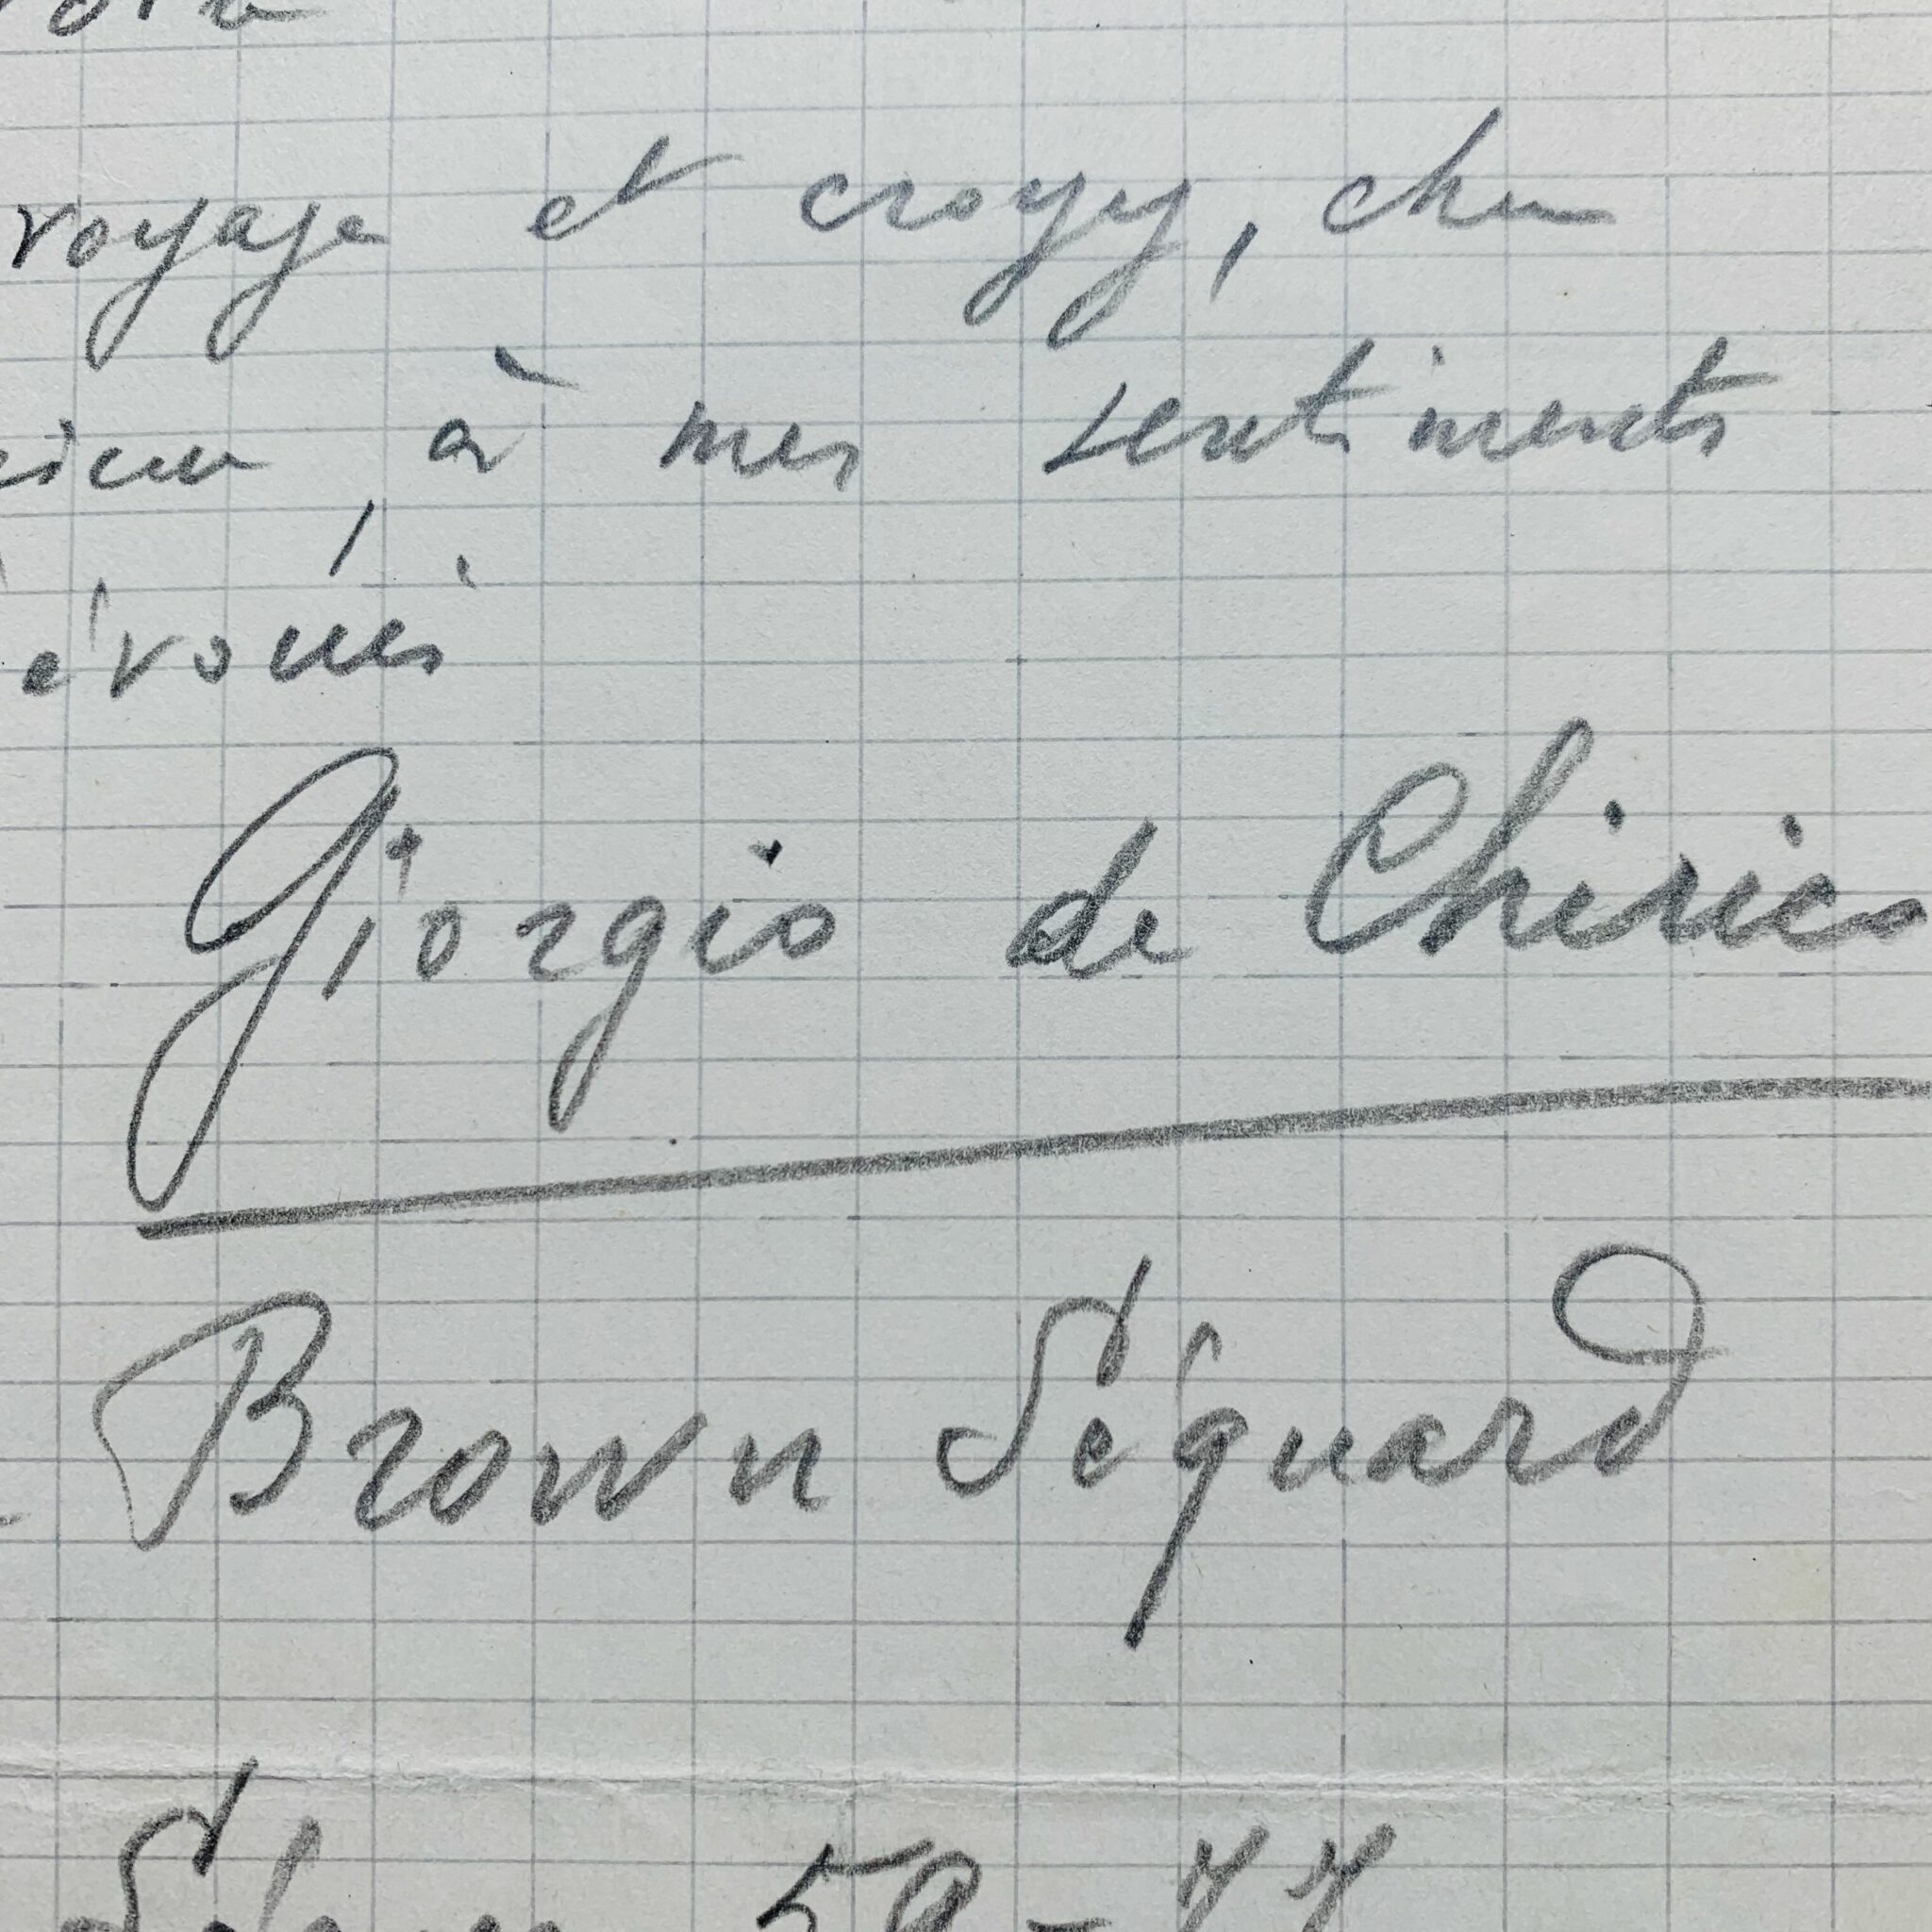 voyage et croyez, cher
à mes sentiments
évoués
Giorgio de Chirico
Brown Séquard
Ségur 59-77